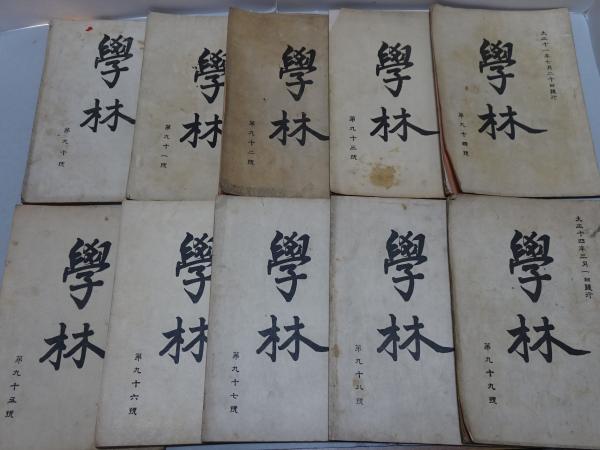 學林
第九十號
學林
第九十一號
學林
第九十二號
學林
第九十三號
大正十一年七月二十日發行
學林
第九十四號
學林
第九十五號
學林
第九十六號
學林
第九十七號
學林
第九十八號
大正十四年三月一日發行
學林
第九十九號